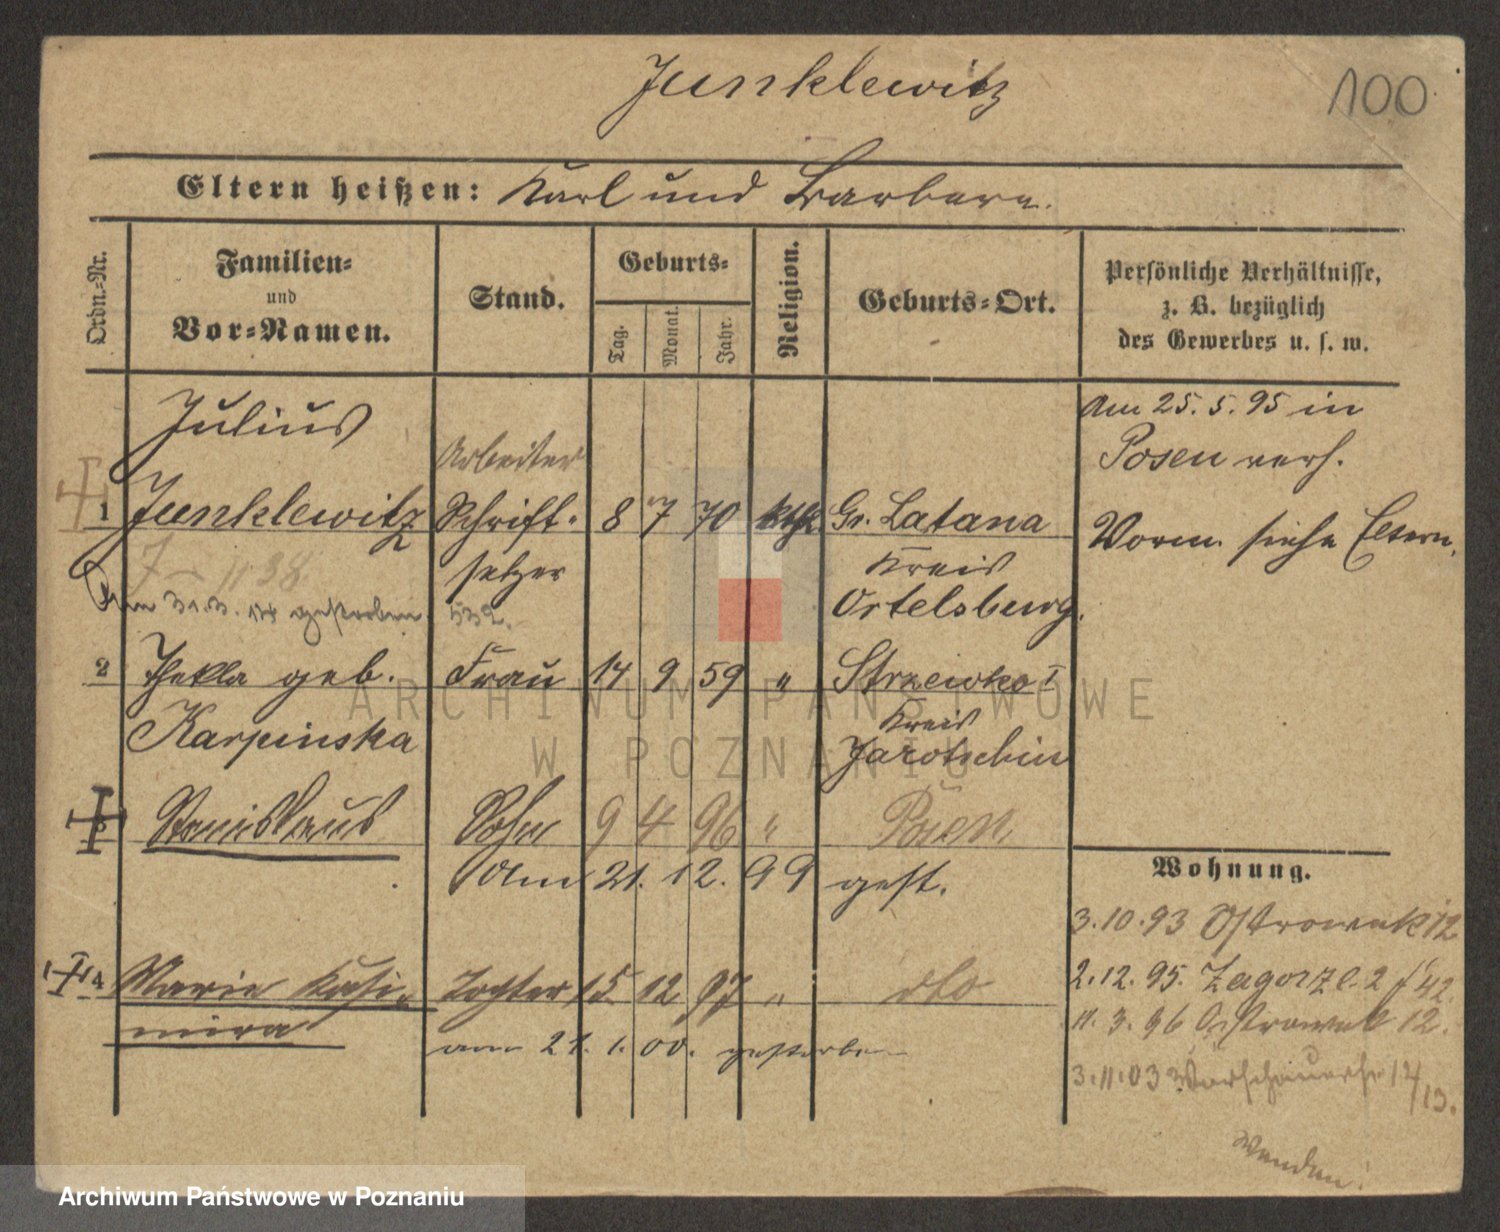 Junklewitz
100
Eltern heißen: Karl und Barbara.
Ordn.-Nr.
Familien-
und
Vor-Namen.
Stand.
Geburts-
Tag.
Monat.
Jahr.
Religion.
Geburts-Ort.
Persönliche Verhältnisse,
z. B. bezüglich
des Gewerbes u. s. w.
Julius
Arbeiter
Am 25. 5. 95 in
Posen verh.
1 Junklewitz Schrift- 8 7 70 kth. Gr. Latana
Vorm. siehe Eltern.
setzer
Kreis
Ortelsburg.
Am 31.3. 14 gestorben 532.
2 Thekla geb. Frau 14 9 59 " Strzewko I
Karpinska
Kreis
Jarotschin
3 Stanislaus Sohn 9 4 96 " Posen
Am 21. 12. 99 gest.
Wohnung.
3.10.93 Ostrowek 12
4 Marie Kasi- Tochter 15 12 97 " dto
mira
am 21. 1. 00. gestorben
2.12.95. Zagorze 2
11. 3. 96 Ostrowek 12.
3.11.03 Warschauerstr. 14/13.
Wenden!
ARCHIWUM PAŃSTWOWE
W POZNANIU
Archiwum Państwowe w Poznaniu